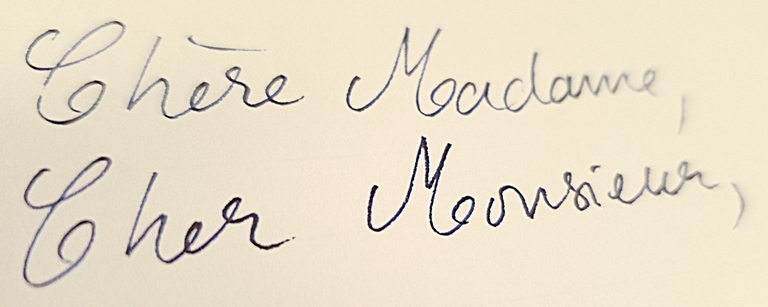 Chère Madame,
Cher Monsieur,